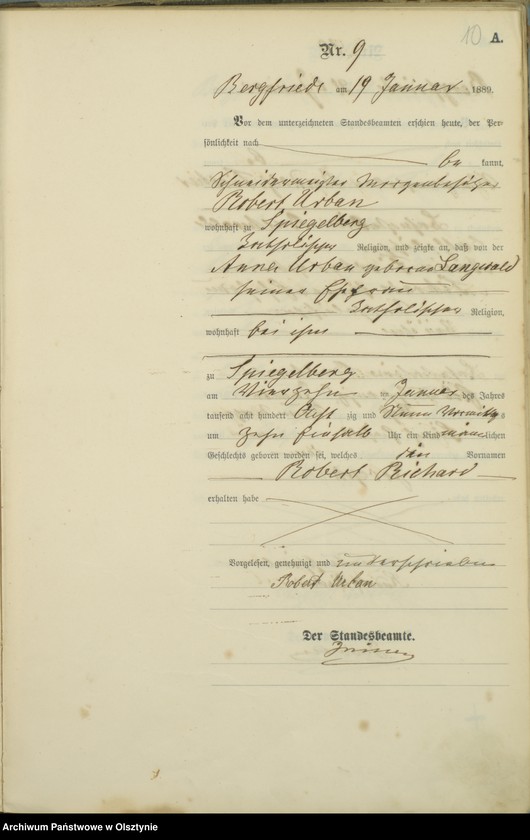 10
A.
Nr. 9
Bergfriede am 19 Januar 1889.
Vor dem unterzeichneten Standesbeamten erschien heute, der Per-
sönlichkeit nach
be kannt,
Schneidermeister
Robert Urban
wohnhaft zu Spiegelberg
katholischer Religion, und zeigte an, daß von der
Anna Urban geborene Langwald
seiner Ehefrau
katholischer Religion,
wohnhaft bei ihm
zu Spiegelberg
am Vierzehn ten Januar des Jahres
tausend acht hundert Acht zig und Neun Vormittags
um zehn einhalb Uhr ein Kind männlichen
Geschlechts geboren worden sei, welches den Vornamen
Robert Richard
erhalten habe
Vorgelesen, genehmigt und unterschrieben
Robert Urban
Der Standesbeamte.
Archiwum Państwowe w Olsztynie